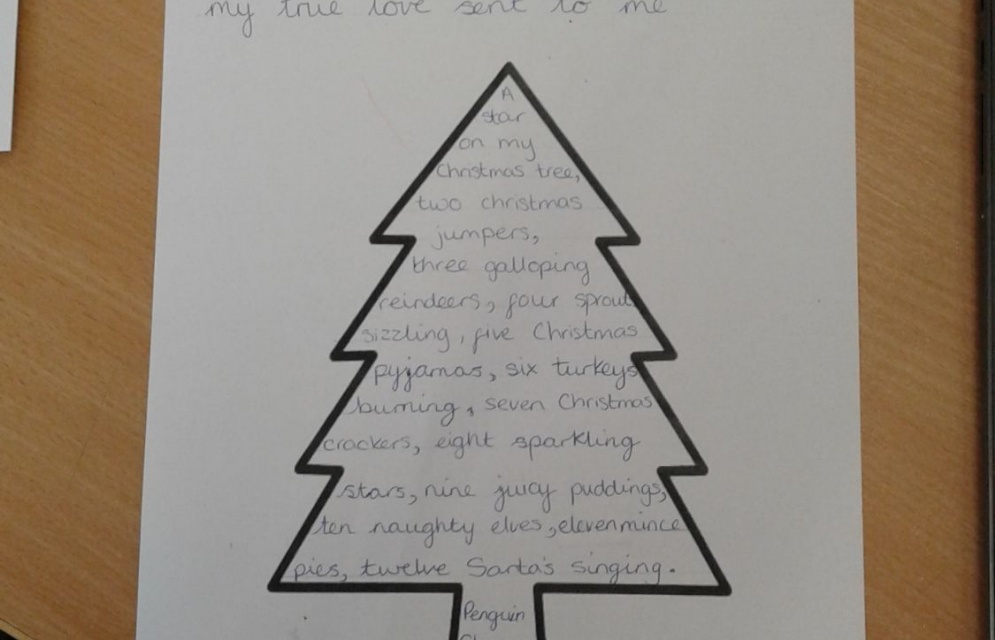 my true love sent to me
A
star
on my
Christmas tree,
two christmas
jumpers,
three galloping
reindeers, four sprouts
sizzling, five Christmas
pyjamas, six turkeys
burning, seven Christmas
crackers, eight sparkling
stars, nine juicy puddings,
ten naughty elves, eleven mince
pies, twelve Santa's singing.
Penguin